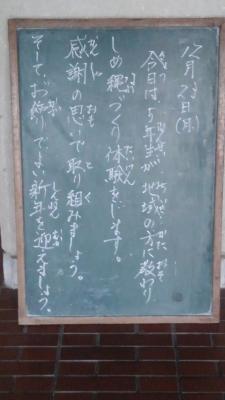 12月21日(月)
今日は、5年生が地域の方に教わり
しめ縄づくり体験をします。
感謝の思いで取り組みましょう。
そして、お飾りでよい新年を迎えましょう。